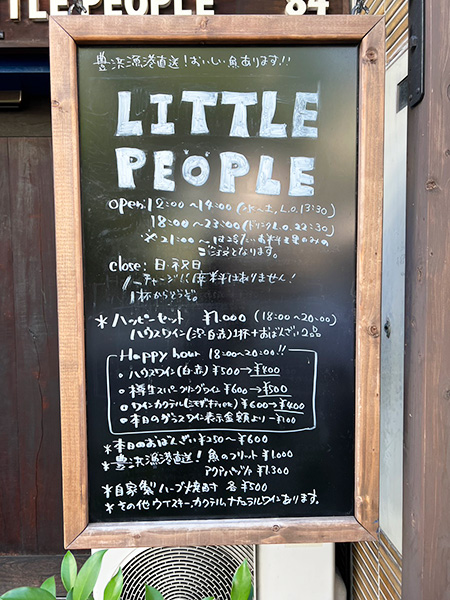 TLE PEOPLE 84
豊浜漁港直送!おいしい魚あります!!
LITTLE
PEOPLE
open: 12:00〜14:00(水〜土, L.O.13:30)
18:00〜23:00(ドリンクL.O.22:30)
※21:00〜
ご注文となります。
close: 日・祝日
ノーチャージ!
1杯からどうぞ。
*ハッピーセット ¥1.000 (18:00〜20:00)
ハウスワイン(泡・白・赤)1杯+おばんざい2品
Happy hour 18:00〜20:00!!
・ハウスワイン(白・赤)¥500→¥400
・樽生スパークリングワイン ¥600→¥500
・ワインカクテル(ミモザ・キティetc)¥600→¥400
・本日のグラスワイン表示金額より−¥100
*本日のおばんざい¥250〜¥600
*豊浜漁港直送!魚のフリット ¥1.000
アクアパッツァ ¥1.300
*自家製ハーブ焼酎 各¥500
*その他ウイスキー、カクテル、ナチュラルワインあります。